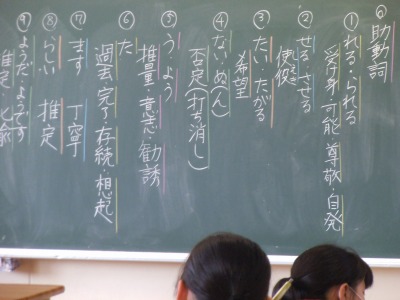 ⑥助動詞
①れる・られる
受け身・可能・尊敬・自発
②せる・させる
使役
③たい・たがる
希望
④ない・ぬ(ん)
否定(打ち消し)
⑤う・よう
推量・意志・勧誘
⑥た
過去・完了・存続・想起
⑦ます 丁寧
⑧らしい 推定
⑨ようだ・ようです
推定・比喩